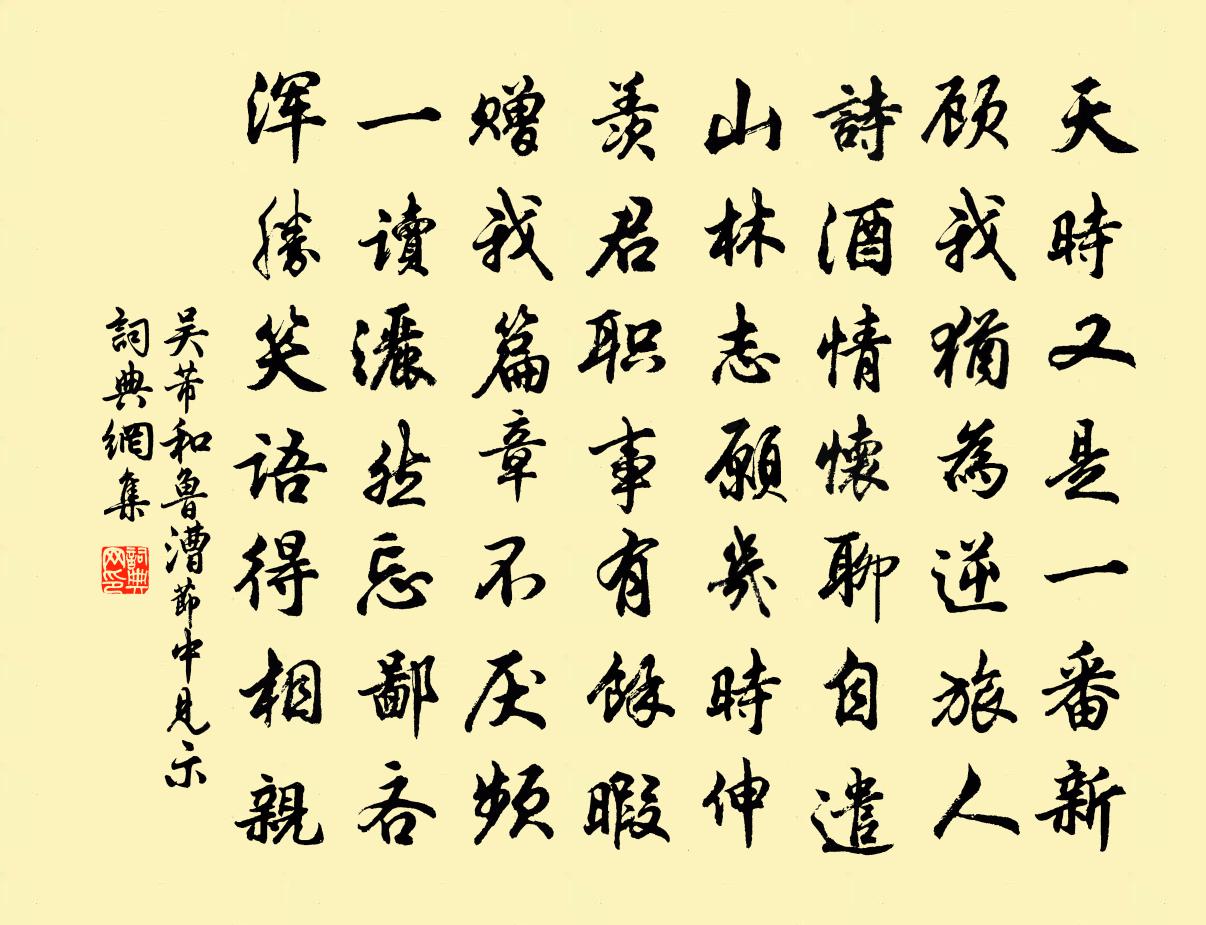 天時又是一番新
顾我猶為逆旅人
詩酒情懷聊自遣
山林志願幾時伸
羨君职事有餘暇
赠我篇章不厌频
一读灑然忘鄙吝
浑勝笑語得相親
吴芾和魯漕節中見示
詞典網集
詞典网印